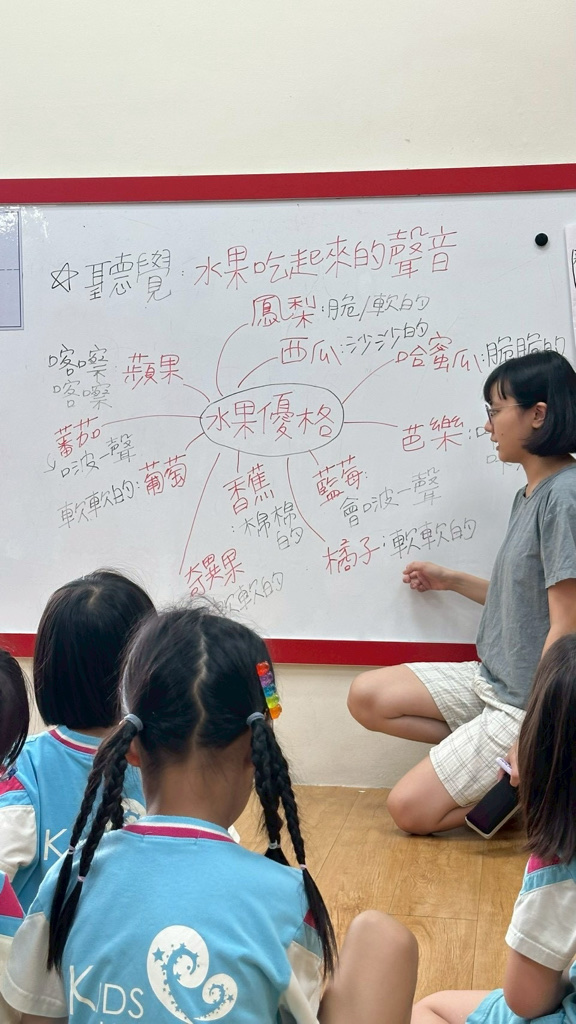 ☆聽覺:水果吃起來的聲音
鳳梨:脆/軟的
西瓜:沙沙的
哈蜜瓜:脆脆的
喀嚓
喀嚓
蘋果
水果優格
蕃茄
啵一聲
芭樂:
軟軟的:葡萄
香蕉
:棉棉
的
藍莓:
會啵一聲
橘子:軟軟的
奇異果
軟軟的
KIDS
K